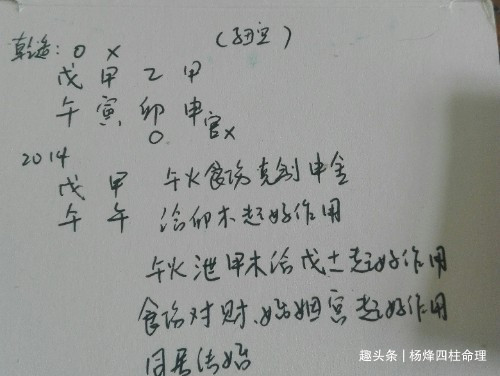 乾造: O X (子丑空)
戊 甲 乙 甲
午 寅 卯 申 官X
O
2014
戊 甲 午火食伤克制申金
午 午 给卯木起好作用
午火泄甲木给戊土起好作用
食伤对财、婚姻宫起好作用
同居结婚
趣头条 | 杨烽四柱命理